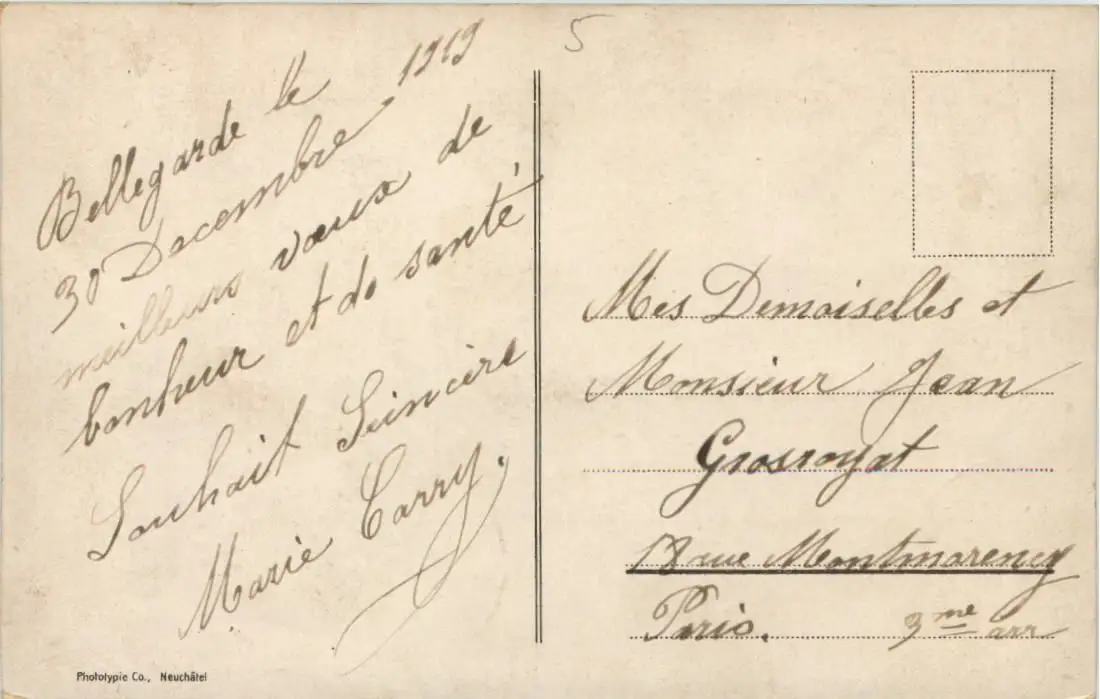 5
Bellegarde le
30 Decembre 1919
meilleurs vœux de
bonheur et de santé
Souhait Seincère
Marie Carry.
Mes Demoiselles et
Monsieur Jean
Grosroyat
rue Montmorency
Paris. 3me arr
Phototypie Co., Neuchâtel